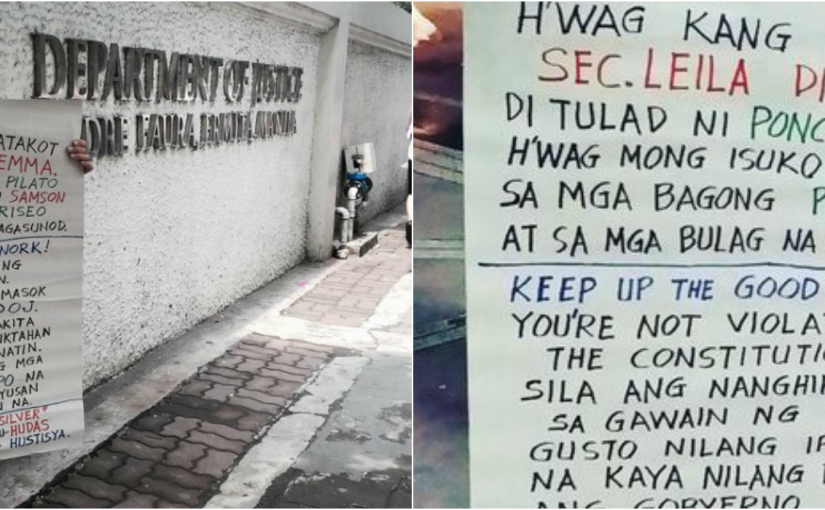 DEPARTMENT OF JUSTICE
PADRE FAURA, ERMITA, MANILA
ATAKOT
EMMA.
PILATO
SAMSON
RISEO
AGASUNOD.
NORK!
NG
N.
MASOK
DOJ.
AKITA
IKTAHAN
NATIN.
G MGA
PO NA
YUSAN
N NA.
SILVER"
U-HUDAS
HUSTISYA.
H'WAG KANG
SEC. LEILA D
DI TULAD NI PONC
H'WAG MONG ISUKO
SA MGA BAGONG P
AT SA MGA BULAG NA
KEEP UP THE GOOD
YOU'RE NOT VIOLAT
THE CONSTITUTIO
SILA ANG NANGHI
SA GAWAIN NG
GUSTO NILANG IP
NA KAYA NILANG
ANG GOBYERNO